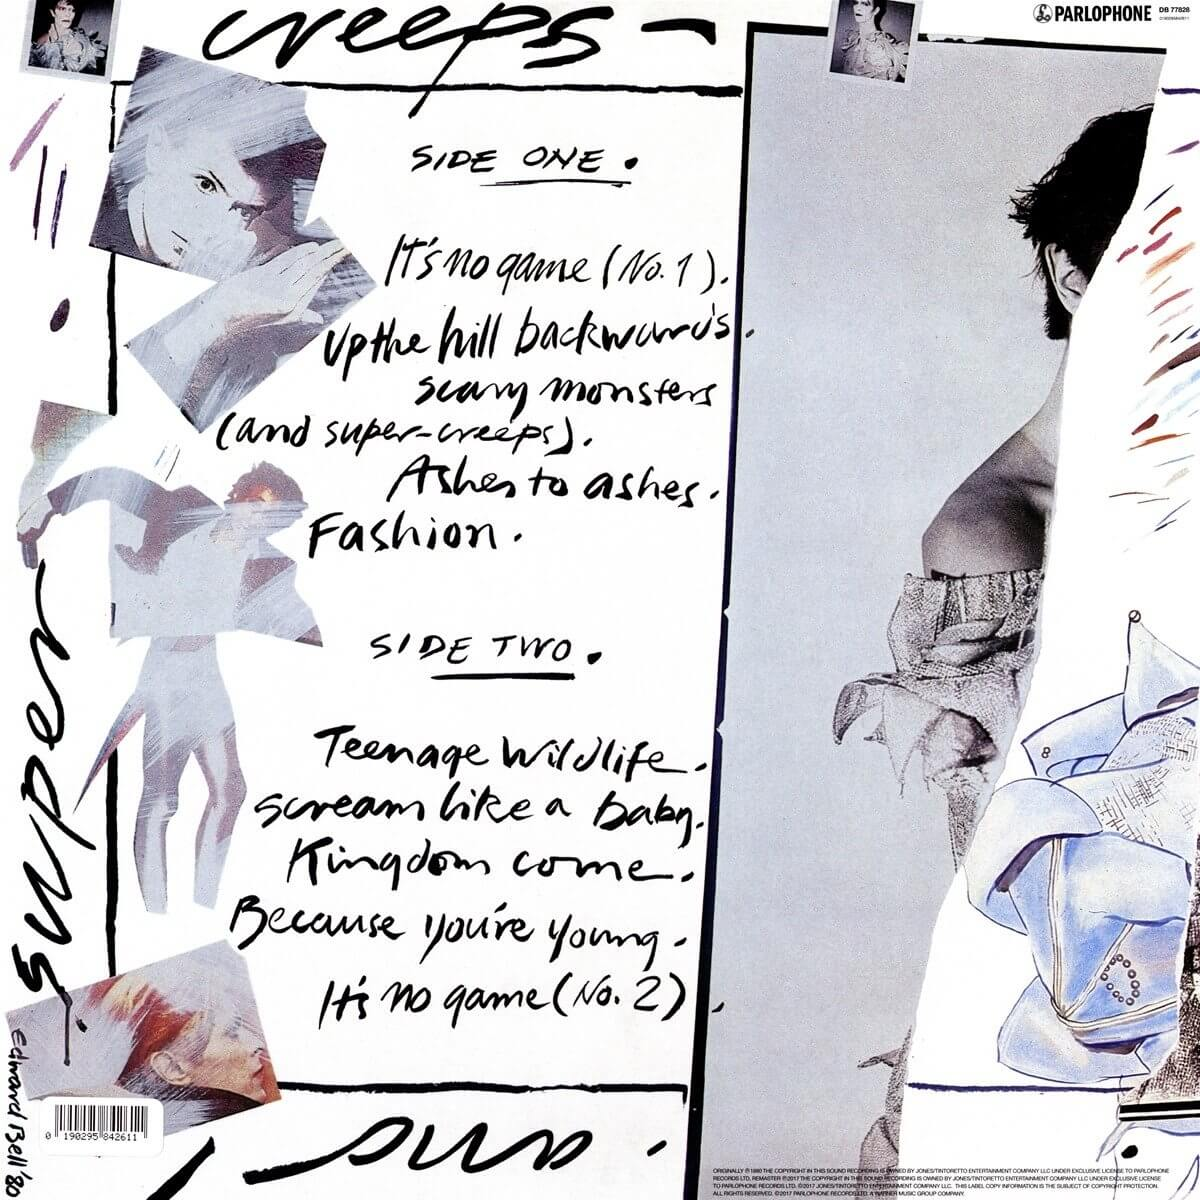 creeps -
PARLOPHONE
DB 77828
0190295842611
SIDE ONE.
It's no game (No. 1).
Up the hill backwards.
scary monsters
(and super-creeps).
Ashes to ashes.
Fashion.
SIDE TWO.
Teenage Wildlife.
Scream like a Baby.
Kingdom come.
Because you're young.
It's no game (No. 2)
super
Edward Bell '80
0 190295 842611
ORIGINALLY ℗ 1980 THE COPYRIGHT IN THIS SOUND RECORDING IS OWNED BY JONES/TINTORETTO ENTERTAINMENT COMPANY LLC UNDER EXCLUSIVE LICENSE TO PARLOPHONE
RECORDS LTD, REMASTER ℗ 2017 THE COPYRIGHT IN THIS SOUND RECORDING IS OWNED BY JONES/TINTORETTO ENTERTAINMENT COMPANY LLC UNDER EXCLUSIVE LICENSE
TO PARLOPHONE RECORDS LTD. © 2017 JONES/TINTORETTO ENTERTAINMENT COMPANY LLC. THIS LABEL COPY INFORMATION IS THE SUBJECT OF COPYRIGHT PROTECTION.
ALL RIGHTS RESERVED. © 2017 PARLOPHONE RECORDS LTD. A WARNER MUSIC GROUP COMPANY.